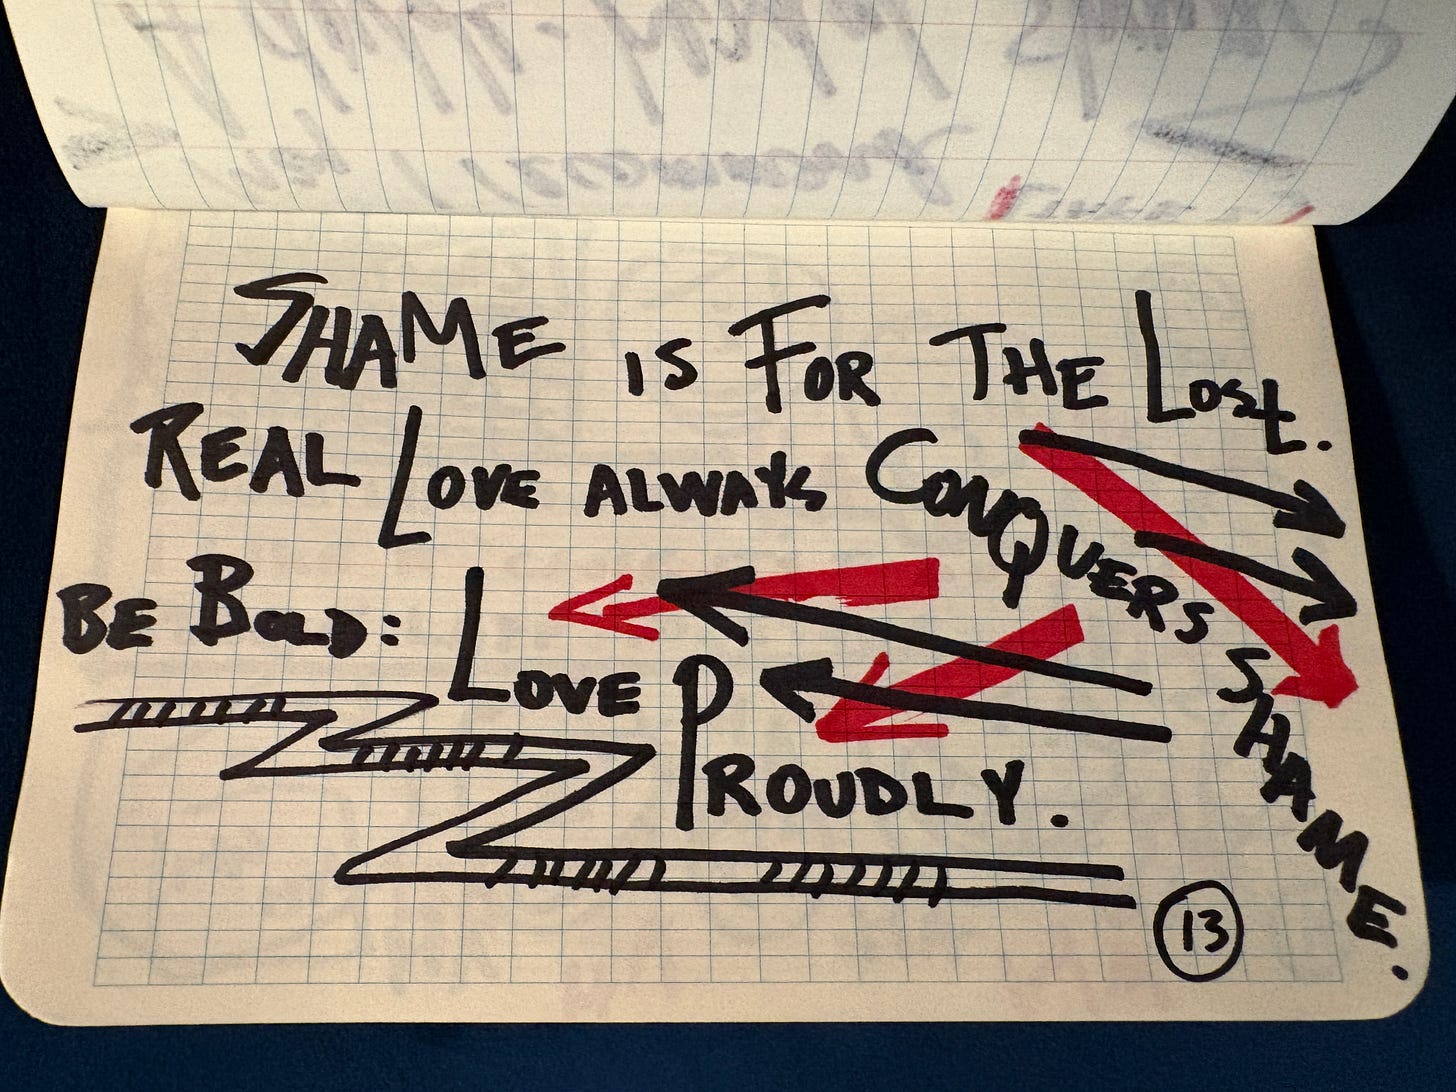 SHAME IS FOR THE LOST.
REAL LOVE ALWAYS CONQUERS SHAME.
BE BOLD: LOVE PROUDLY.
13